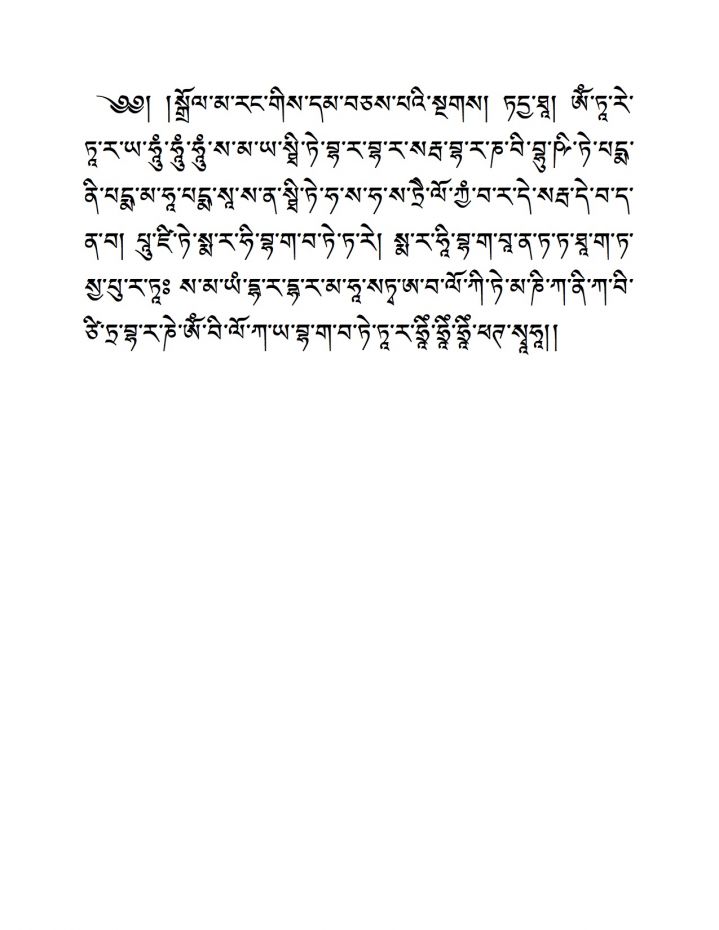 ༄༅། །སྒྲོལ་མ་རང་གིས་དམ་བཅས་པའི་སྔགས། ཏདྱ་ཐཱ། ཨོཾ་ཏཱ་རེ་
ཏཱ་ར་ཡ་ཧཱུྂ་ཧཱུྂ་ཧཱུྂ་ས་མ་ཡ་སྠི་ཏེ་བྷ་ར་བྷ་ར་སརྦ་བྷ་ར་ཎ་བི་བྷཱུ་ཥི་ཏེ་པདྨ་
ནི་པདྨ་མ་ཧཱ་པདྨ་སཱ་ས་ན་སྠི་ཏེ་ཧ་ས་ཧ་ས་ཏྲཻ་ལོ་ཀྱཾ་བ་ར་དེ་སརྦ་དེ་བ་ད་
ན་བ། པཱུ་ཛི་ཏེ་སྨ་ར་ཧི་བྷ་ག་བ་ཏེ་ཏ་རེ། སྨ་ར་ཧཱི་བྷ་ག་བཱ་ན་ཏ་ཏ་ཐཱ་ག་ཏ་
སྱ་པུ་ར་ཏཱཿ ས་མ་ཡཾ་དྷ་ར་དྷ་ར་མ་ཧཱ་སཏྭ་ཨ་བ་ལོ་ཀི་ཏེ་མ་ཎི་ཀ་ནི་ཀ་བི་
ཙི་ཏྲ་བྷ་ར་ཎེ་ཨོཾ་བི་ལོ་ཀ་ཡ་བྷ་ག་བ་ཏེ་ཏཱ་ར་ཧྲཱིྂ་ཧྲཱིྂ་ཧྲཱིྂ་ཕཊ་སྭཱཧཱ།།